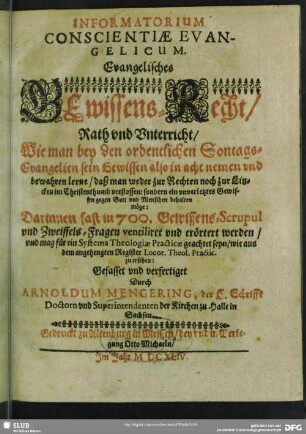 INFORMATORIUM
CONSCIENTIÆ EVAN-
GELICUM.
Evangelisches
GEwissens-Recht/
Rath vnd Vnterricht/
Wie man bey den ordentlichen Sontags-
Evangelien sein Gewissen also in acht nemen vnd
bewahren lerne/ daß man weder zur Rechten noch zur Lin-
cken im Christenthumb verstosse; sondern ein unverletztes Gewis-
sen gegen Gott vnd Menschen behalten
möge:
Darinnen fast in 700. Gewissens-Scrupul
vnd Zweiffels-Fragen ventiliret vnd erörtert werden/
vnd mag für ein Systema Theologiæ Practicæ geachtet seyn/ wie aus
dem angehengten Register Locor. Theol. Practic.
zu ersehen:
Gefasset vnd verfertiget
Durch
ARNOLDUM MENGERING, der H. Schrifft
Doctorn vnd Superintendenten der Kirchen zu Halle in
Sachsen.
Gedruckt zu Altenburg in Meissen/ bey vnd in Verle-
gung Otto Michaeln/
Im Jahr M DC XLIV.
SLUB
Wir führen Wissen.